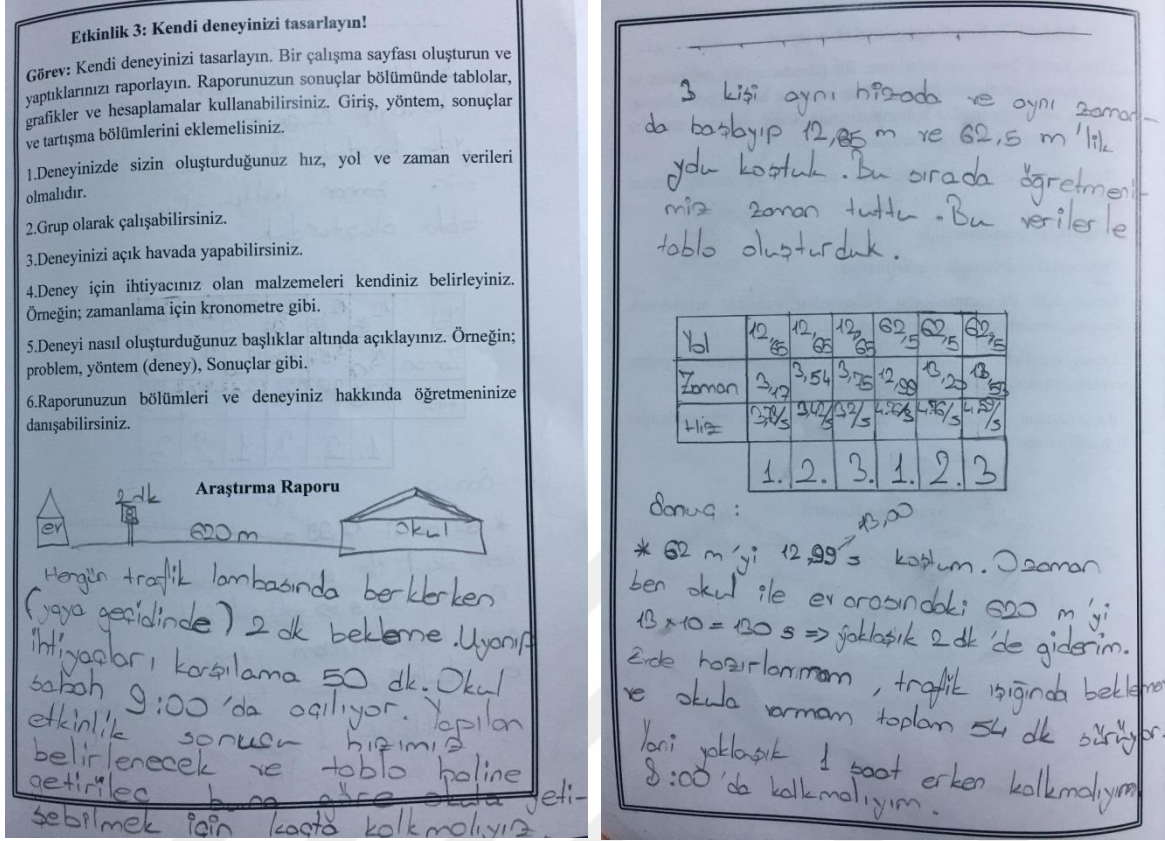 Etkinlik 3: Kendi deneyinizi tasarlayın!
Görev: Kendi deneyinizi tasarlayın. Bir çalışma sayfası oluşturun ve
yaptıklarınızı raporlayın. Raporunuzun sonuçlar bölümünde tablolar,
grafikler ve hesaplamalar kullanabilirsiniz. Giriş, yöntem, sonuçlar
ve tartışma bölümlerini eklemelisiniz.
1.Deneyinizde sizin oluşturduğunuz hız, yol ve zaman verileri
olmalıdır.
2.Grup olarak çalışabilirsiniz.
3.Deneyinizi açık havada yapabilirsiniz.
4.Deney için ihtiyacınız olan malzemeleri kendiniz belirleyiniz.
Örneğin; zamanlama için kronometre gibi.
5.Deneyi nasıl oluşturduğunuz başlıklar altında açıklayınız. Örneğin;
problem, yöntem (deney), Sonuçlar gibi.
6.Raporunuzun bölümleri ve deneyiniz hakkında öğretmeninize
danışabilirsiniz.
Araştırma Raporu
ev
2 dk
620 m
Okul
Hergün trafik lambasında berklerken
(yaya geçidinde) 2 dk bekleme. Uyanıp
ihtiyaçları karşılama 50 dk. Okul
sabah 9:00'da açılıyor. Yapılan
etkinlik sonucu hızımız
belirlenecek ve tablo haline
getirilec buna göre okula yeti-
şebilmek için kaçta kalkmalıyız.
3 kişi aynı hizada ve aynı zaman-
da başlayıp 12,65 m ve 62,5 m'lik
yolu koştuk. Bu sırada öğretmeni-
miz zaman tuttu. Bu verilerle
tablo oluşturduk.
Yol 12,65 12,65 12,65 62,5 62,5 62,5
Zaman 3,17 3,54 3,75 12,99 13,20 13,53
Hız
1. 2. 3. 1. 2. 3
Sonuç :
13,00
* 62 m'yi 12,99 s koştum. O zaman
ben okul ile ev arasındaki 620 m'yi
13 x 10 = 130 s => yaklaşık 2 dk'de giderim.
Evde hazırlanmam, trafik ışığında beklemem
ve okula varmam toplam 54 dk sürüyor.
Yani yaklaşık 1 saat erken kalkmalıyım
8:00'da kalkmalıyım.